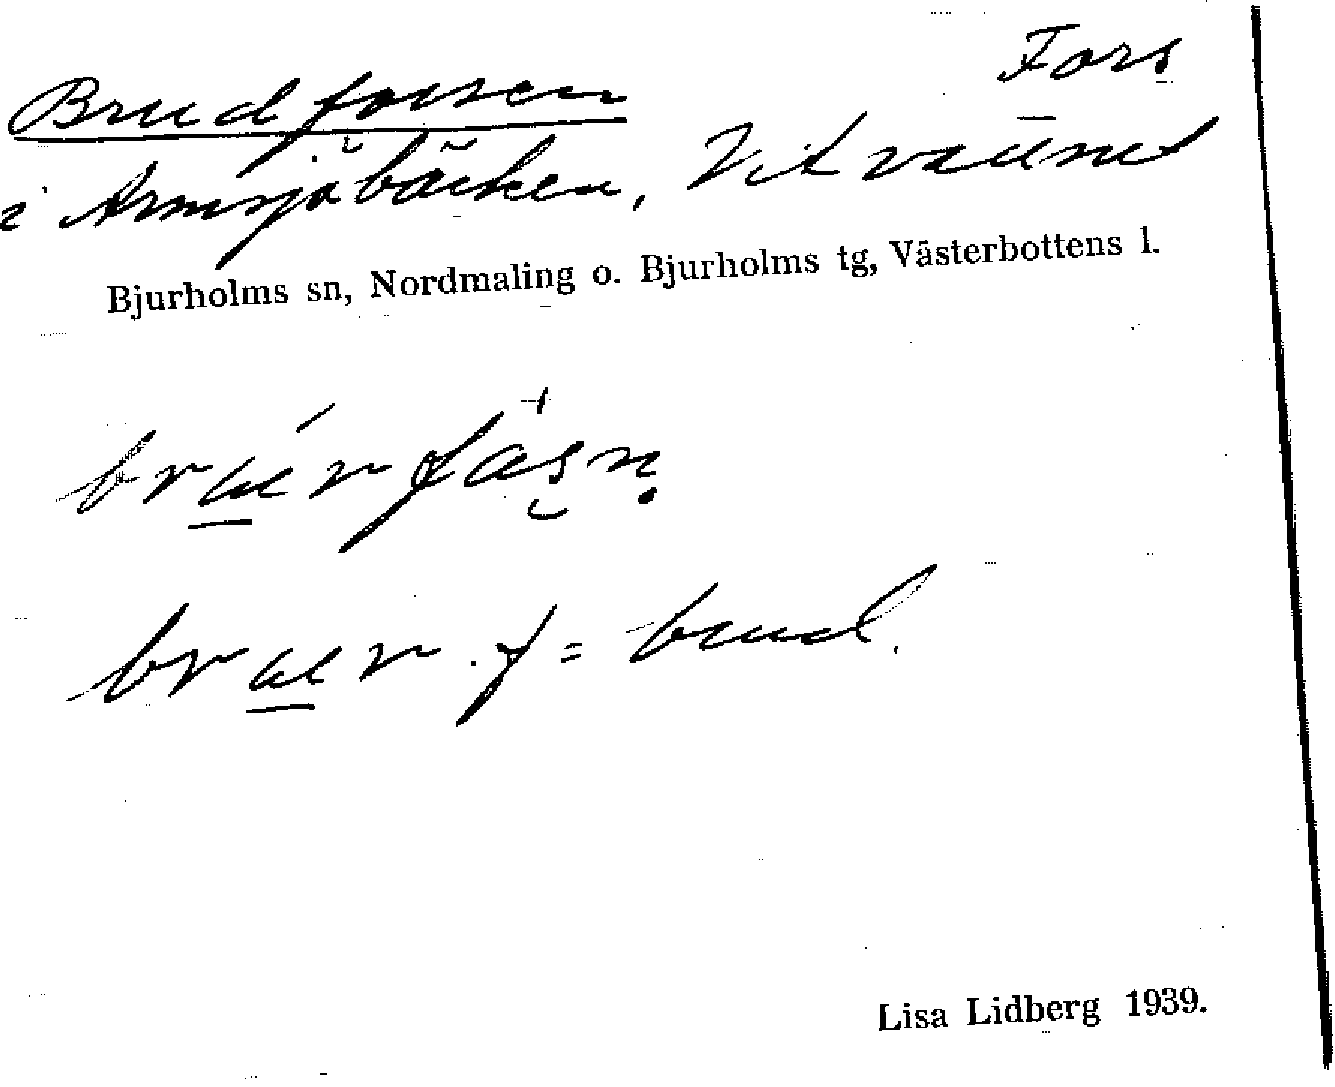 Brudforsen Fors
i Armsjöbäcken, Vitvattnet
Bjurholms sn, Nordmaling o. Bjurholms tg, Västerbottens l.
f = brud.
Lisa Lidberg 1939.